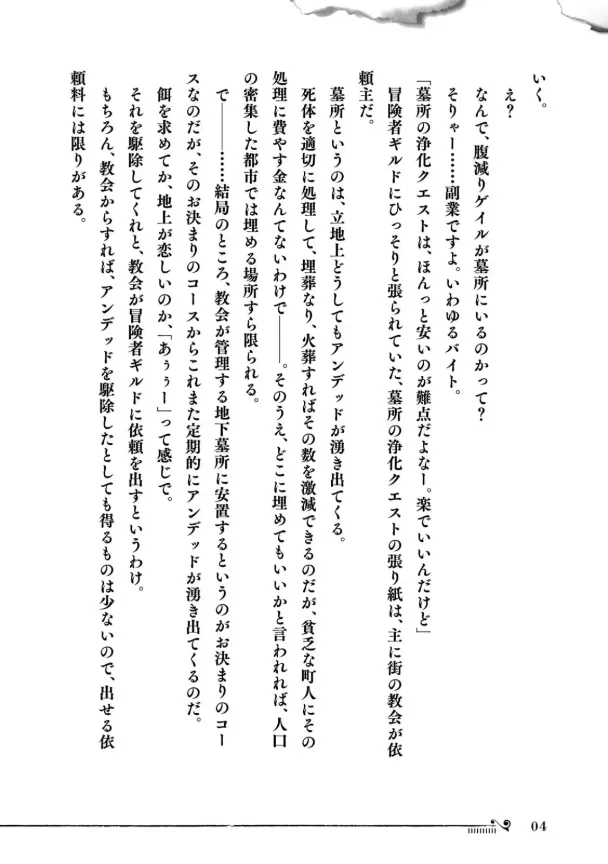 いく。
え？
なんで、腹減りゲイルが墓所にいるのかって？
そりゃー……副業ですよ。いわゆるバイト。
「墓所の浄化クエストは、ほんっと安いのが難点だよなー。楽でいいんだけど」
冒険者ギルドにひっそりと張られていた、墓所の浄化クエストの張り紙は、主に街の教会が依
頼主だ。
墓所というのは、立地上どうしてもアンデッドが湧き出てくる。
死体を適切に処理して、埋葬なり、火葬すればその数を激減できるのだが、貧乏な町人にその
処理に費やす金なんてないわけで――。そのうえ、どこに埋めてもいいかと言われれば、人口
の密集した都市では埋める場所すら限られる。
で――……結局のところ、教会が管理する地下墓所に安置するというのがお決まりのコー
スなのだが、そのお決まりのコースからこれまた定期的にアンデッドが湧き出てくるのだ。
餌を求めてか、地上が恋しいのか、「あぅぅー」って感じで。
それを駆除してくれと、教会が冒険者ギルドに依頼を出すというわけ。
もちろん、教会からすれば、アンデッドを駆除したとしても得るものは少ないので、出せる依
頼料には限りがある。
04